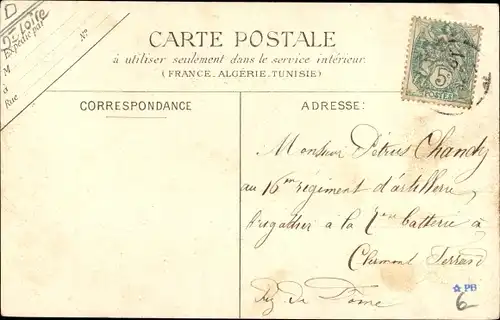 D
D. Loire
Expédié par
M
à
Rue
N°
CARTE POSTALE
à utiliser seulement dans le service intérieur
(FRANCE, ALGÉRIE, TUNISIE)
5c
POSTES
CORRESPONDANCE
ADRESSE:
Monsieur Pétrus Chandy
au 16me régiment d'artillerie,
a la batterie a
Clermont Ferrand
Puy de Dome
PB
6